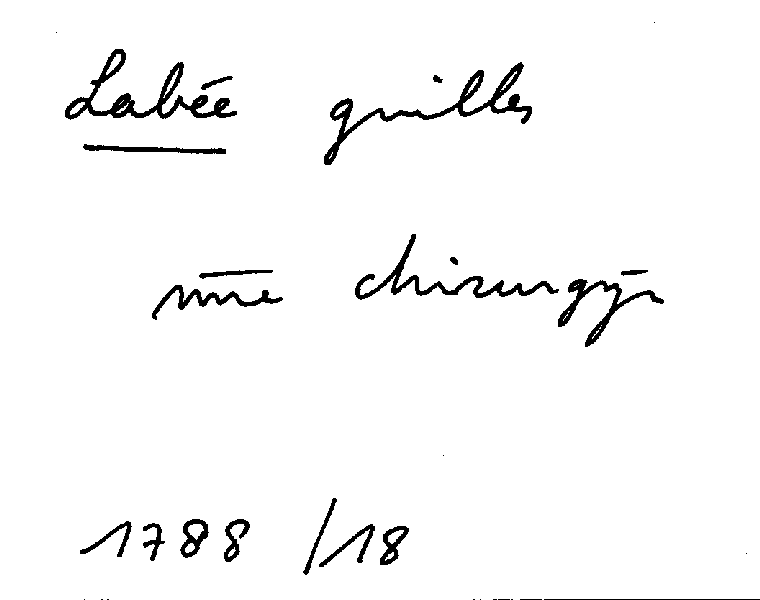 Labée guilles
mre chirurgyn
1788 /18